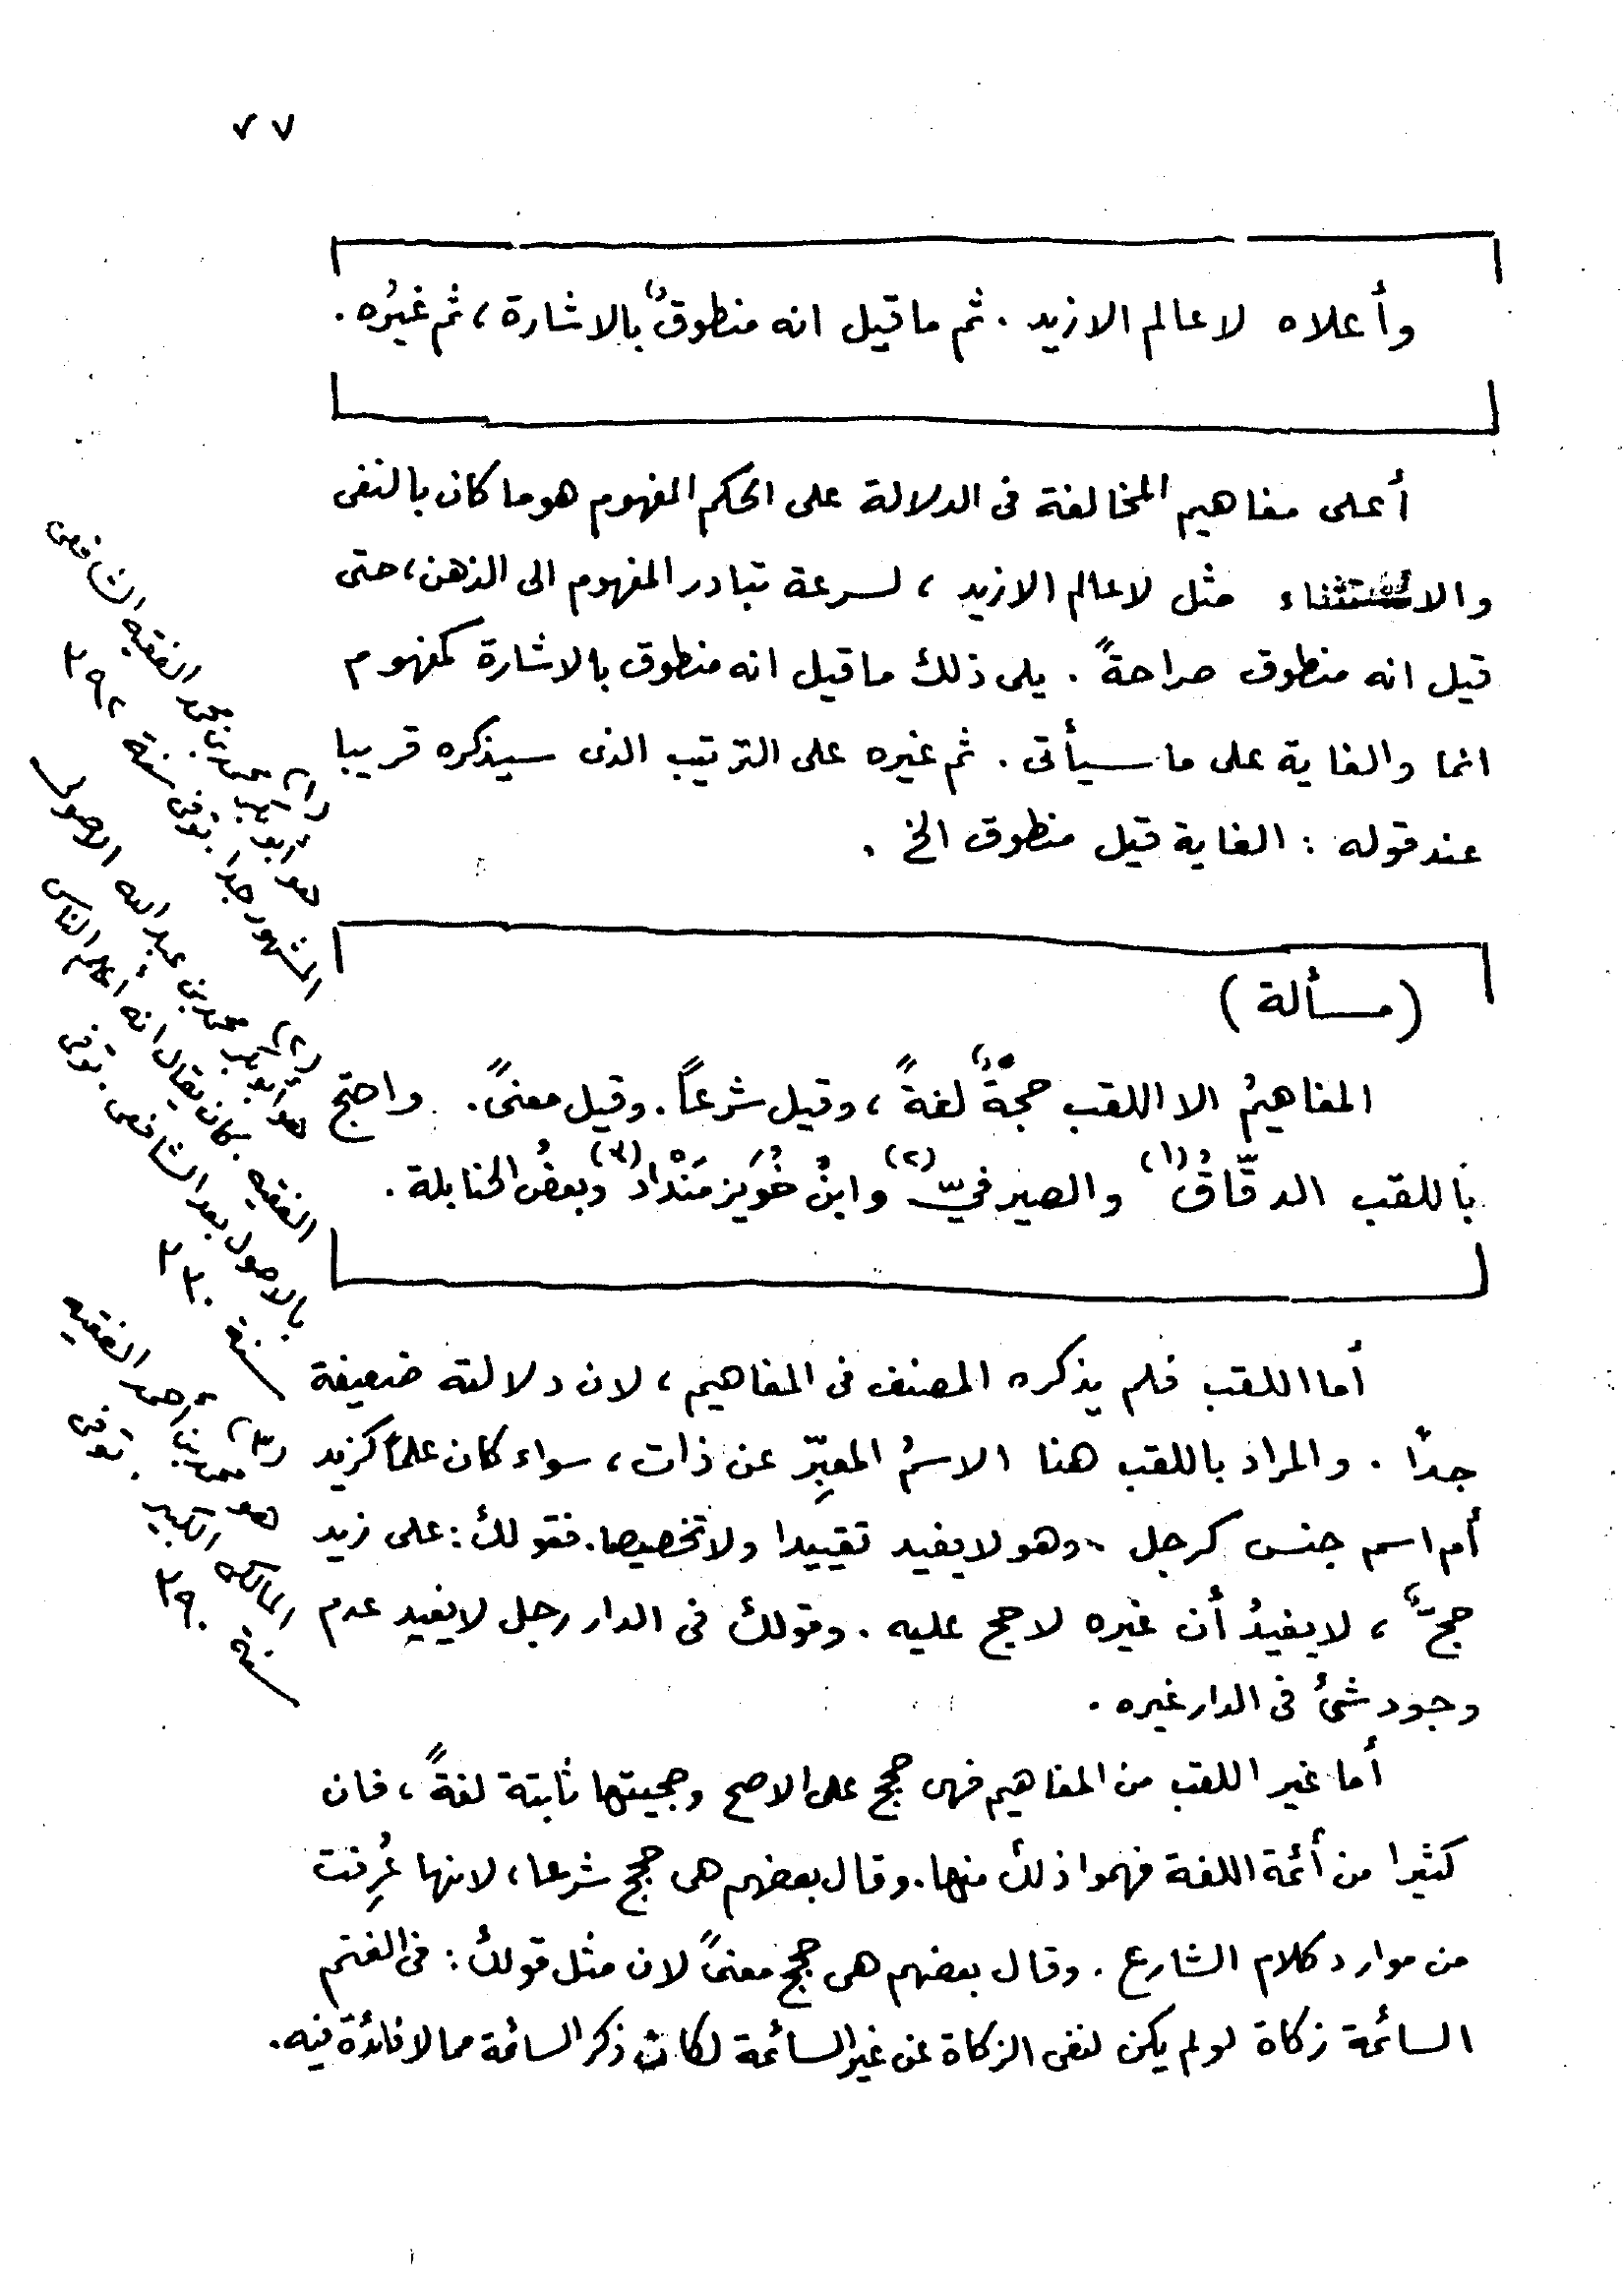 ٧٧
وأعلاه لا عالم الا زيد . ثم ما قيل انه منطوقٌ بالاشارة ، ثم غيرُه .
أعلى مفاهيم المخالفة فى الدلالة على الحكم المفهوم هو ما كان بالنفى
والاستثناء مثل لا عالم الا زيد ، لسرعة تبادر المفهوم الى الذهن ، حتى
قيل انه منطوق صراحةً . يلى ذلك ما قيل انه منطوق بالاشارة كمفهوم
انما والغاية على ما سيأتى . ثم غيره على الترتيب الذى سيذكره قريبا
عند قوله : الغاية قيل منطوق الخ .
( مسألة )
المفاهيمُ الا اللقب حجةٌ لغةً ، وقيل شرعاً . وقيل معنىً . واحتج
باللقب الدقّاقُ (١) والصيرفيّ (٢) وابنُ خُوَيزمَنْدَاد (٣) وبعضُ الحنابلة .
أما اللقب فلم يذكره المصنف فى المفاهيم ، لان دلالته ضعيفة
جدًا . والمراد باللقب هنا الاسمُ المعبِّر عن ذات ، سواء كان علمًا كزيد
أم اسم جنس كرجل . وهو لا يفيد تقييدا ولا تخصيصا . فقولك : على زيد
حجٌّ ، لا يفيدُ أن غيره لا حج عليه . وقولك فى الدار رجل لا يفيد عدم
وجود شئ فى الدار غيره .
أما غير اللقب من المفاهيم فهى حجج على الاصح وحجيتها ثابتة لغةً ، فان
كثيرا من أئمة اللغة فهموا ذلك منها . وقال بعضهم هى حجج شرعا ، لانها عُرِفت
من موارد كلام الشارع . وقال بعضهم هى حجج معنىً لان مثل قولك : فى الغنم
السائمة زكاة لو لم يكن لنفى الزكاة عن غير السائمة لكان ذكر السائمة مما لا فائدة فيه .
(١)
محمد بن محمد الفقيه الشافعى
المشهور جدا . توفى سنة ٣٩٢
(٢)
هو أبو بكر محمد بن عبد الله الاصولى
الفقيه . كان يقال انه أعلم الناس
بالاصول بعد الشافعى . توفى
سنة ٣٣٠
(٣)
هو محمد بن أحمد الفقيه
المالكى الكبير . توفى
سنة ٣٩٠